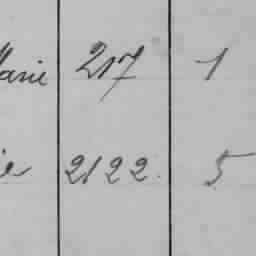 Marie 217 1
ie 2122. 5